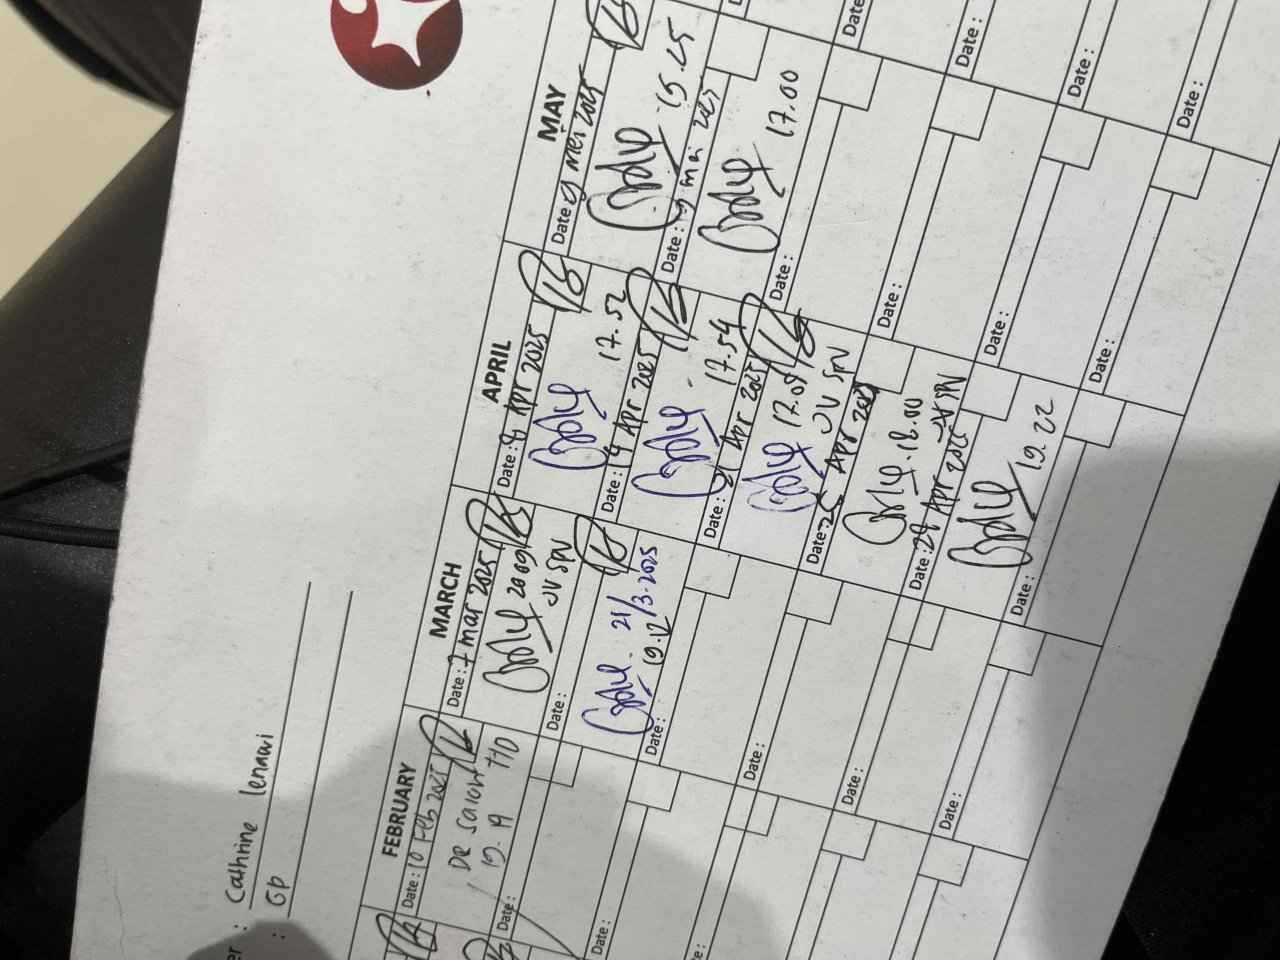 er : Cathrine lennawi
: GP
FEBRUARY
Date: 10 Feb 2025
DR
19.19
Date:
Date:
MARCH
Date: 7 mar 2025
2009
JV SPV
Date:
21/3.2025
19.12
Date:
Date:
Date:
Date:
APRIL
Date: 8 Apr 2025
17.52
Date: 14 Apr 2025
17.54
Date: 21 Apr 2025
17.05
JV SPV
Date: 25 Apr
18.00
Date: 29 Apr 2025 JV SPV
19.22
Date:
MAY
Date: 9 Mei 2025
15.25
Date: 19 mei 2025
17.00
Date:
Date:
Date:
Date:
Date:
Date:
Date:
Date: